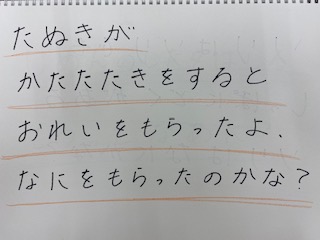 たぬきが
かたたたきをすると
おれいをもらったよ、
なにをもらったのかな?